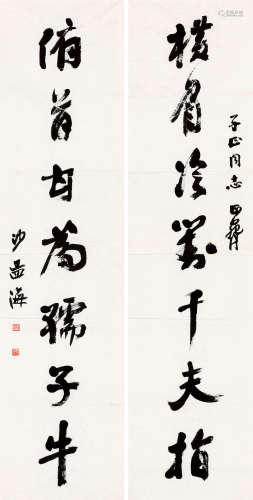 子正同志
橫眉冷對千夫指
俯首甘為孺子牛
沙孟海